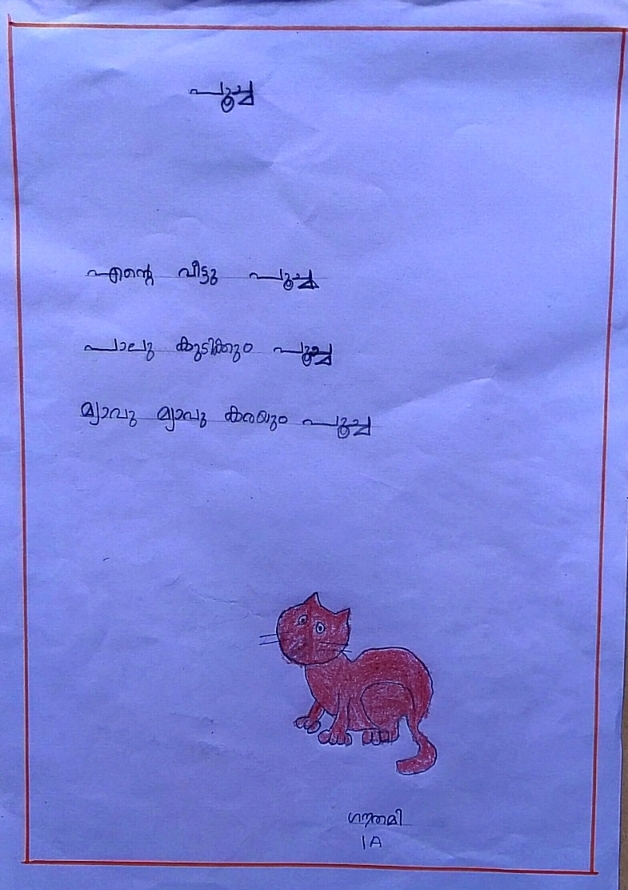 പൂച്ച
എന്റെ വീട്ടു പൂച്ച
പാലു കുടിക്കും പൂച്ച
മ്യാവു മ്യാവു കരയും പൂച്ച
ഗൗതമി
1A